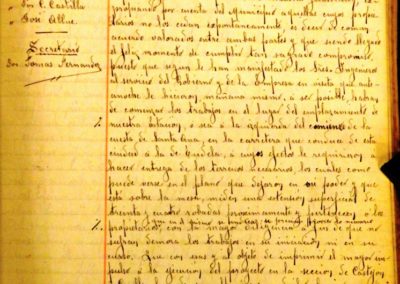 " Dn C. Castilla
" José Allue
Secretario
Don Tomás Fernandez
propiando por cuenta del Municipio aquellas cuyos propie
tarios no los cedan espontaneamente, es decir de comun
acuerdo valorados entre ambas partes y que siendo llegado
el feliz momento de cumplir tan sagrado compromiso
puesto que segun le han manifestado los Sres. Ingenieros
al servicio del Gobierno y de la Empresa en visita que ante
anoche le hicieron, mañana mismo, a ser posible, habran
de comenzar los trabajos en el lugar del emplazamiento de
nuestra estacion, ó sea á la izquierda del comienzo de la
cuesta de Santa Ana, en la carretera que conduce de esta
ciudad á la de Tudela, á cuyos efectos le requirieron á
hacer entrega de los terrenos necesarios los cuales como
puede verse en el plano que dejaron en su poder y que
está sobre la mesa, miden una extension superficial de
treinta y cuatro robadas proximamente y pertenecen á los
propietarios, con la mayor diligencia á fin de que no
sufran demora los trabajos en su iniciacion ni en su
curso. Que con esas y al objeto de imprimir el mayor im
pulso á la ejecucion del proyecto en la seccion de Castejon